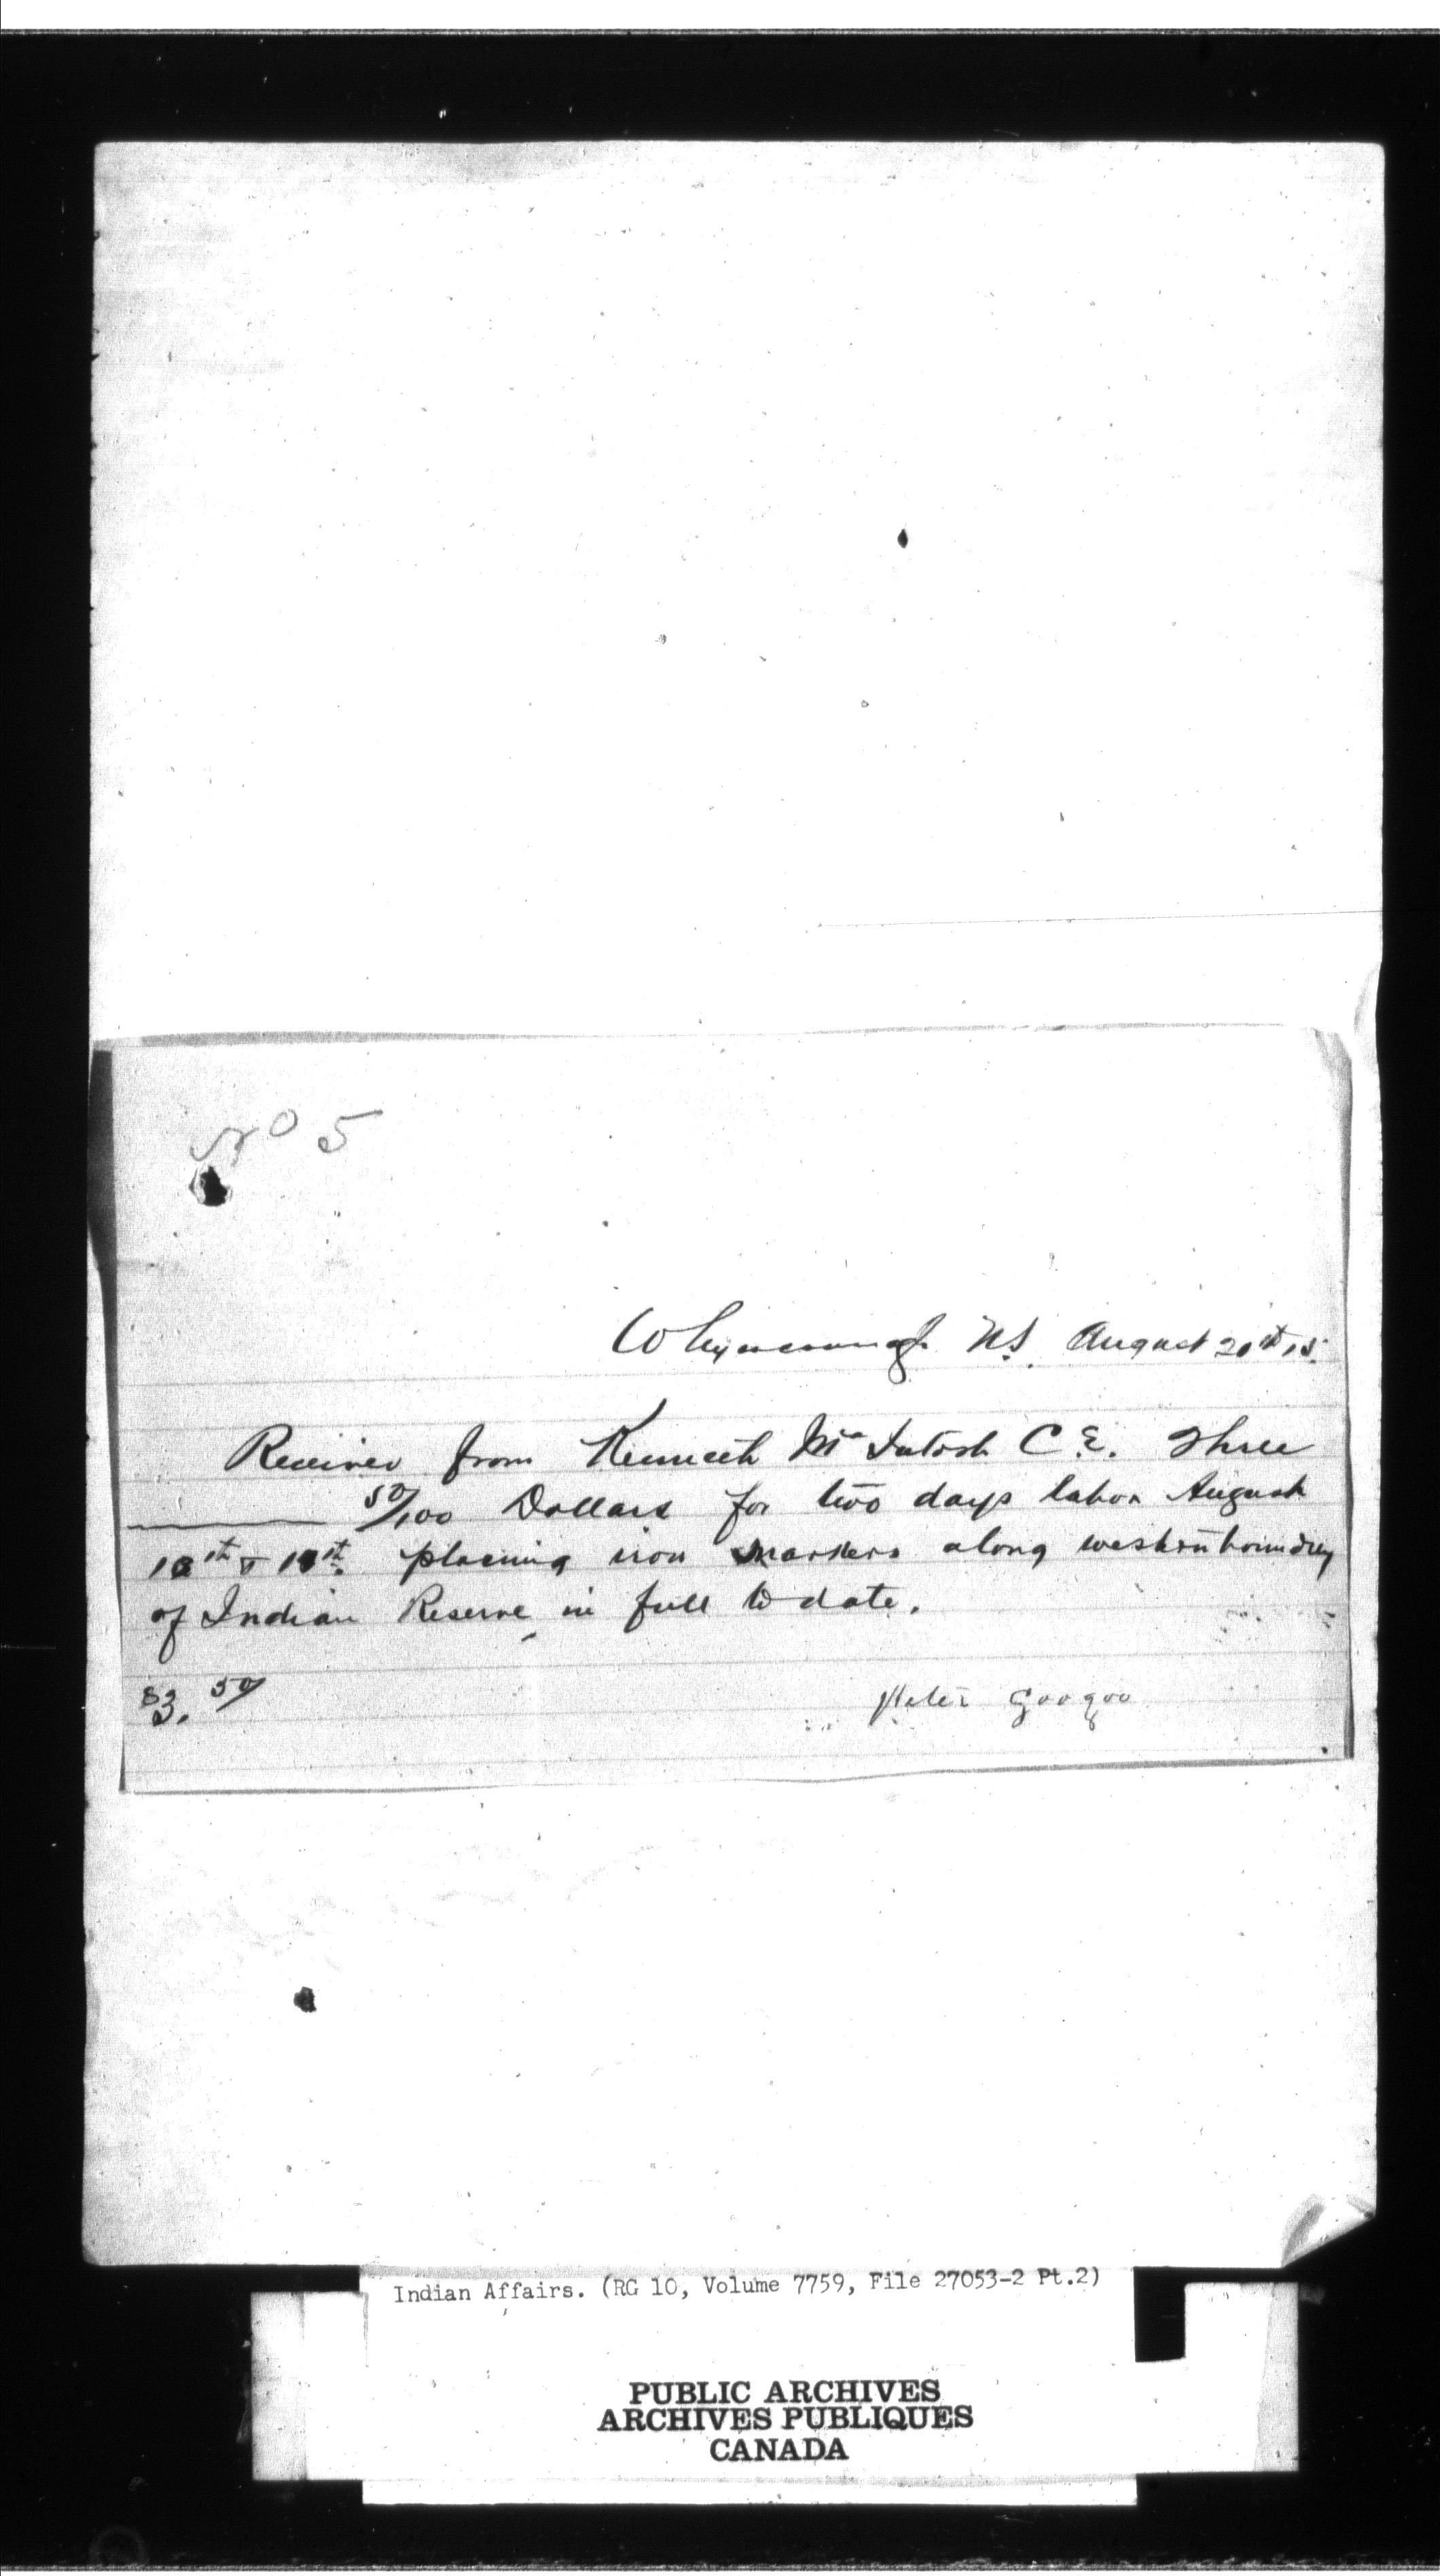 No 5
Whycocomagh N.S. August 20th 15.
Received from Kenneth McIntosh C.E. Three
50/100 Dollars for two days labor August
placing iron markers along western boundry
of Indian Reserve in full to date.
$3.50
Peter Googoo
Indian Affairs. (RG 10, Volume 7759, File 27053-2 Pt.2)
PUBLIC ARCHIVES
ARCHIVES PUBLIQUES
CANADA